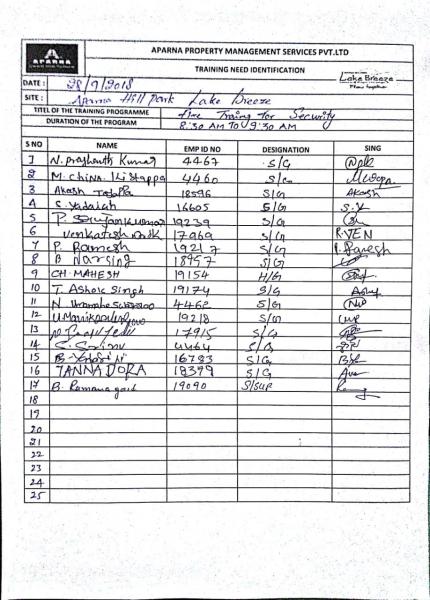 APARNA PROPERTY MANAGEMENT SERVICES PVT.LTD
APARNA
TRAINING NEED IDENTIFICATION
Lake Breeze
DATE : 28/7/2018
SITE : Aparna Hill Park Lake Breeze
TITEL OF THE TRAINING PROGRAMME Fire Traing for Security
DURATION OF THE PROGRAM 8:30 AM To 9:30 AM
S NO NAME EMP ID NO DESIGNATION SING
1 N. Prashanth Kumar 4467 S/G
2 M. China Kistappa 4460 S/G
3 Akash 18596 S/G Akash
4 S. Yadaiah 16605 S/G S.Y
5 P. 19239 S/G
6 Venkatesh 17969 S/G R.VEN
7 P. Ramesh 19217 S/G P. Ramesh
8 B Narsing 18957 S/G
9 CH. MAHESH 19154 H/G
10 T. Ashok Singh 19174 S/G
11 N. 4462 S/G
12 19218 S/G
13 17915 S/G
14 S. 4464 S/G
15 B. 16783 S/G
16 TANNADORA 18399 S/G
17 B. Ramana goud 19090 S/SUP
18
19
20
21
22
23
24
25